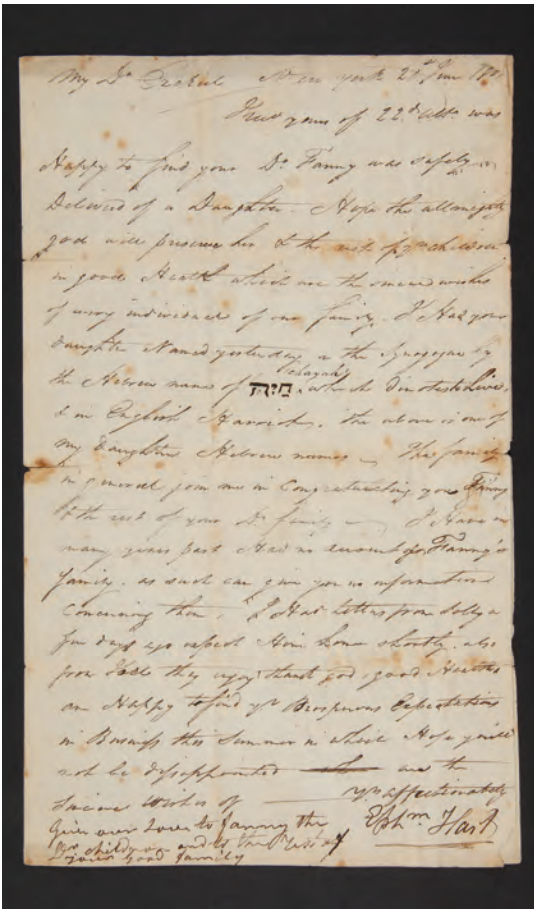 My Dr Ezekiel New york 2d June
yours of 22d Ulto was
Happy to find your Dr Fanny was safely
Delivred of a Daughter. Hope the allmighty
god will preserve her & the rest of yr children
in good Health which are the sincere wishes
of every individual of our family. I Had your
daughter Named yesterday in the Synagogue by
Chayah
the Hebrew name of חיה, which denotes
& in English Harriet, the above is one of
my Daughters Hebrew names — The family
in general join me in Congratulating you Fanny
& the rest of your Dr family — I Have in
many years past Had no account of Fanny's
family. as such can give you no information
Concerning them, I Had Letters from
few days ago expect Him home shortly. also
from they enjoy thank god, good Health
am Happy to find yr Prosperous Expectations
in Business this Summer in which Hope you'll
not be disappointed are the
Sincere Wishes of yrs affectionately
Ephm Hart
Give our Love to Fanny the
Dr children and to the rest of
your good family